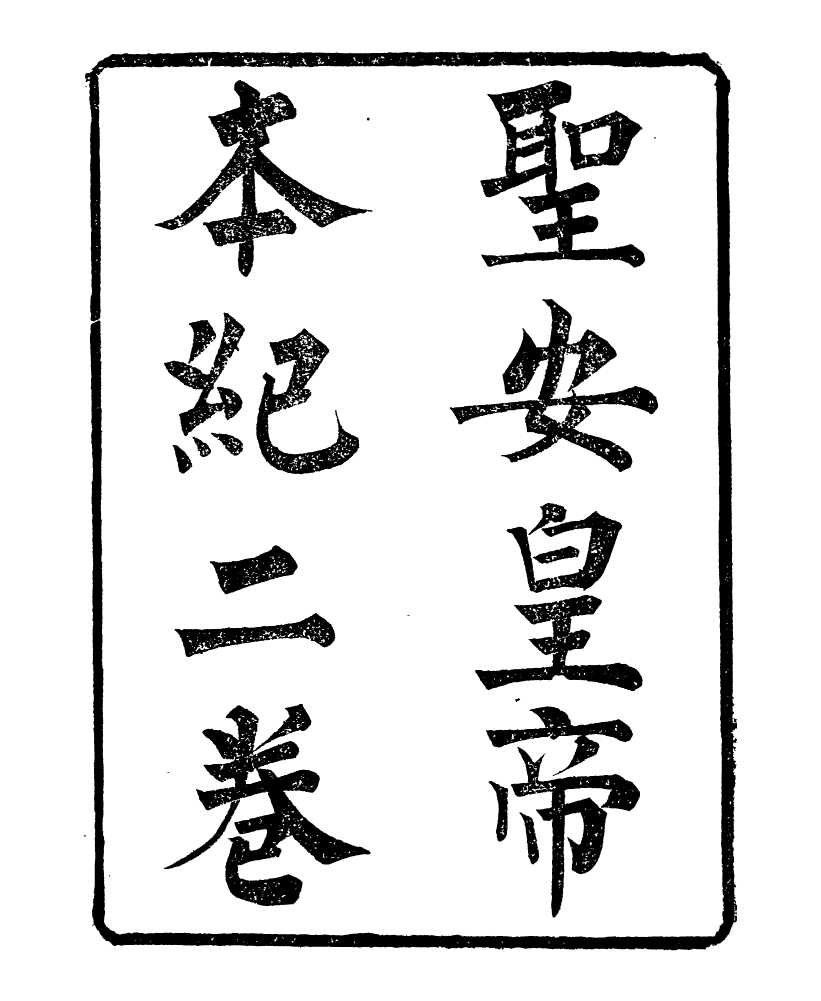 聖安皇帝
本紀二卷